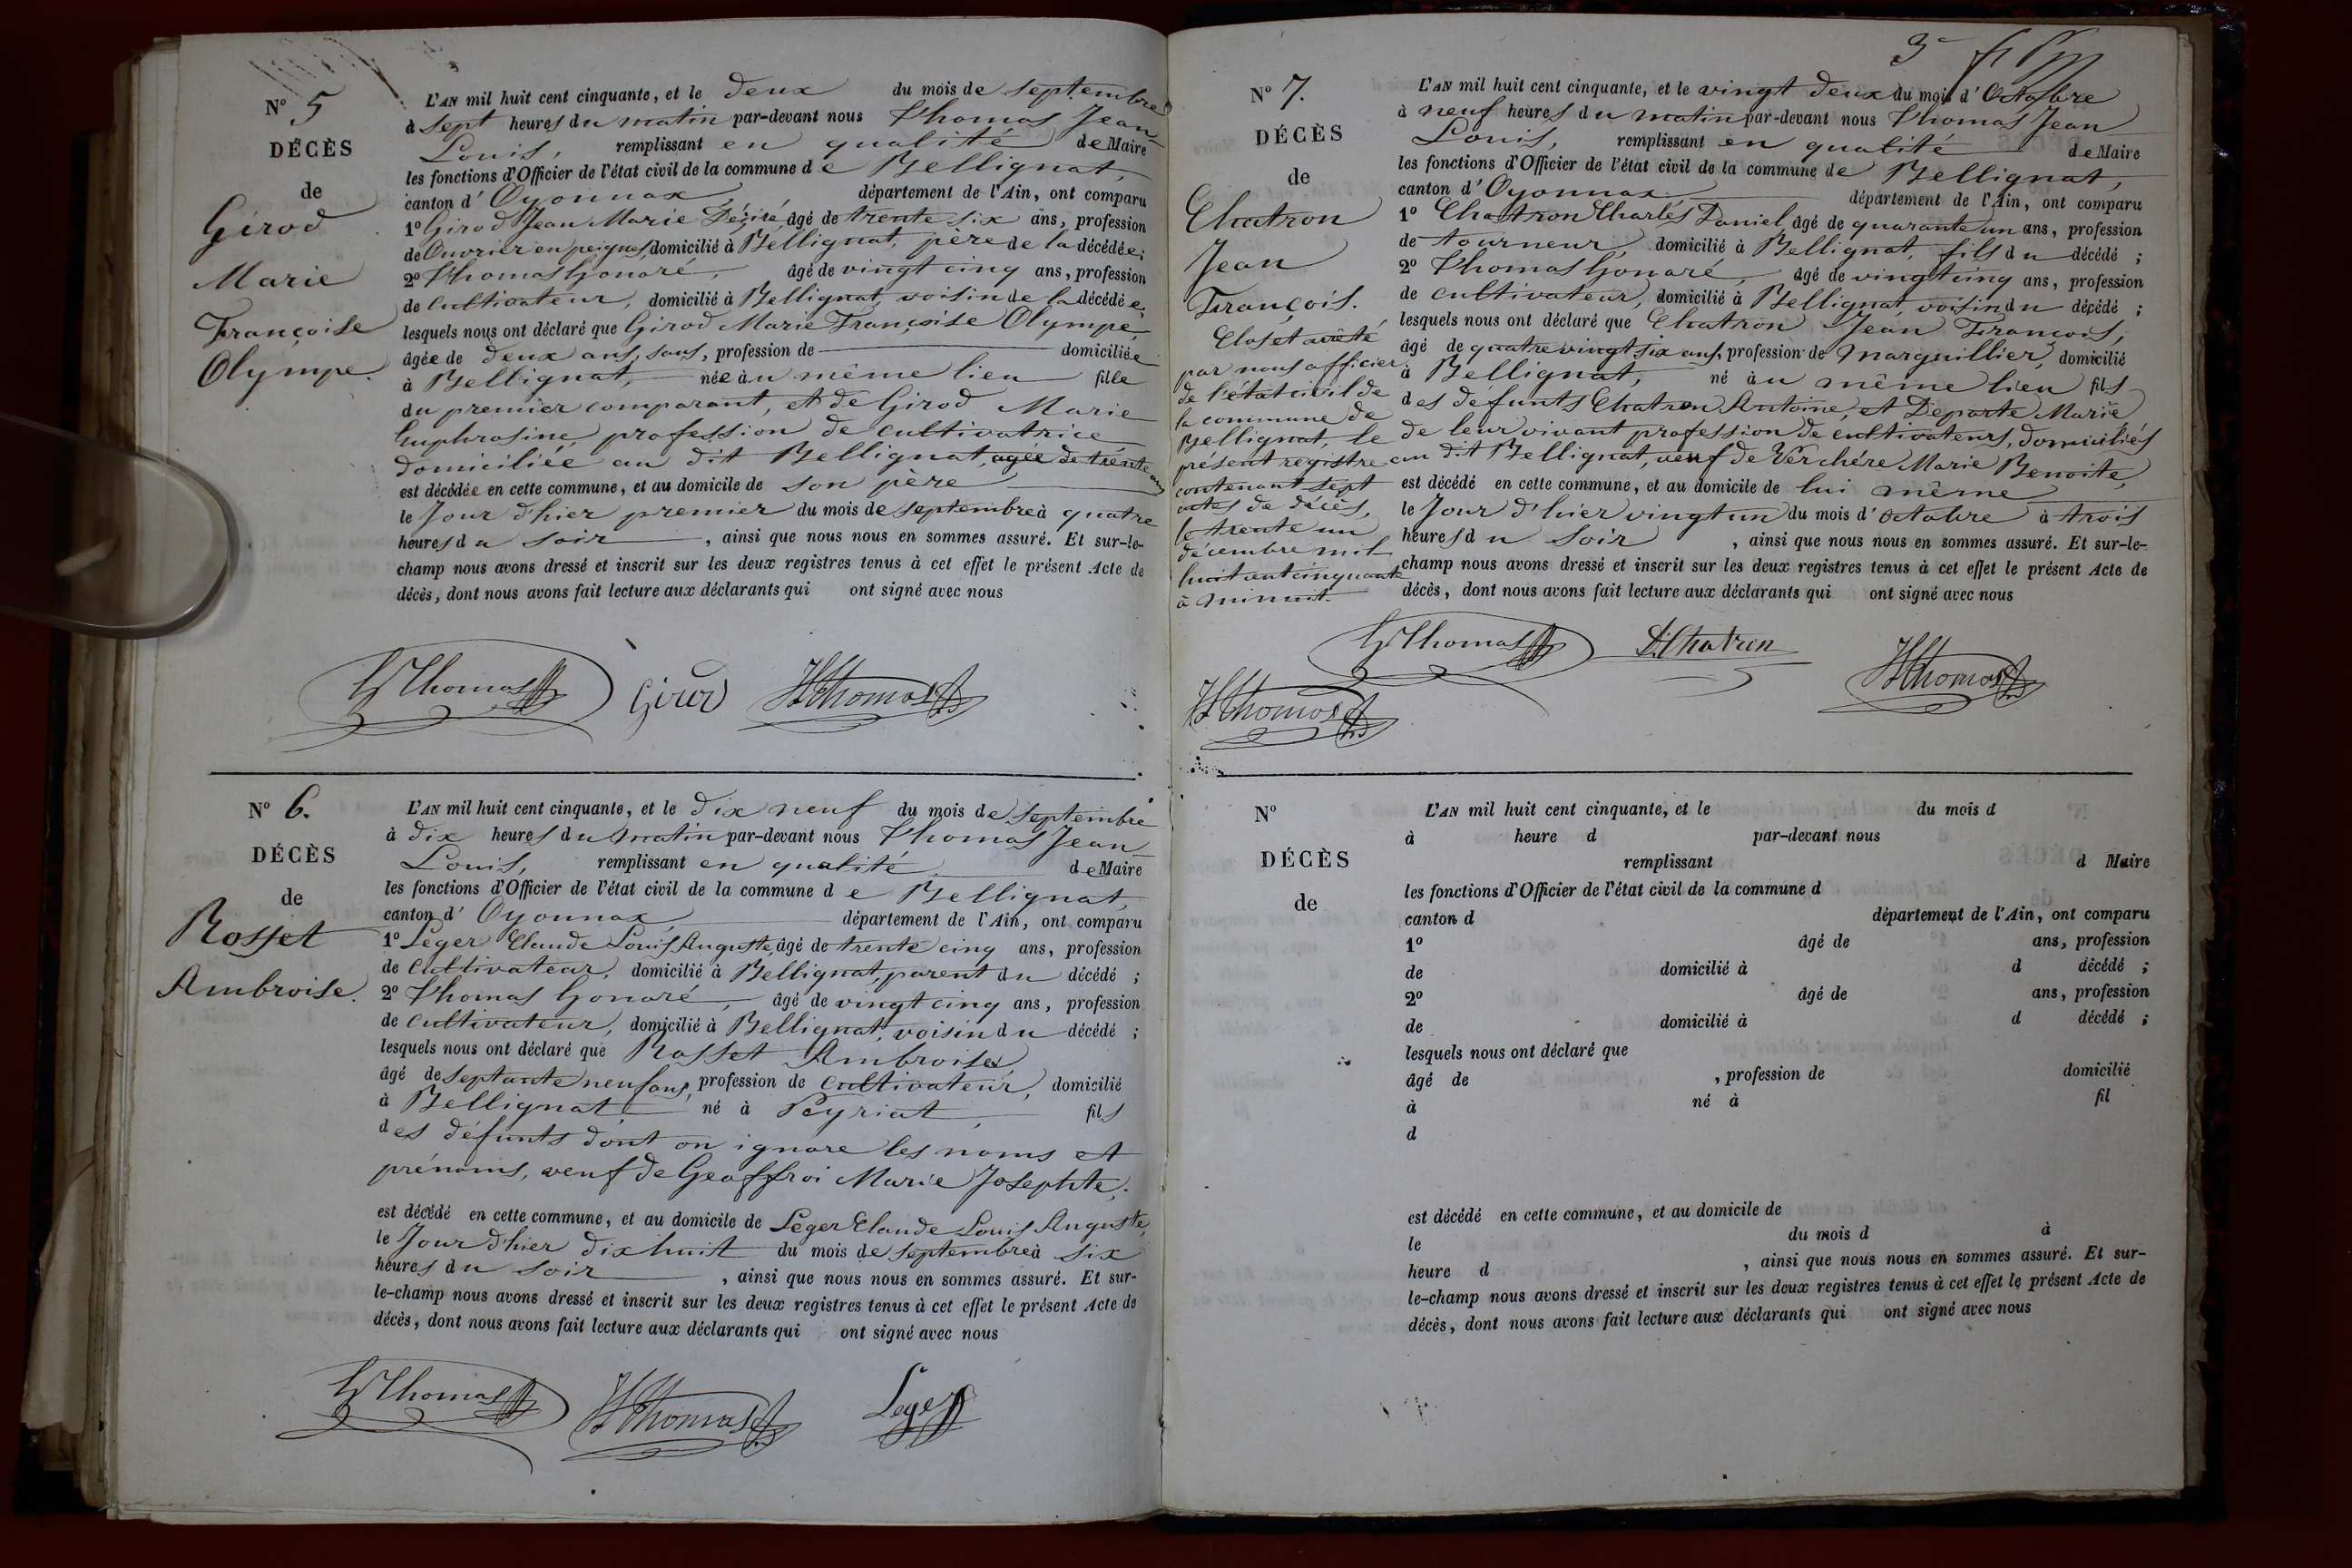 N° 5
DÉCÈS
de
Girod
Marie
Françoise
Olympe.
L'AN mil huit cent cinquante, et le deux du mois de septembre
à sept heures du matin par-devant nous Thomas Jean
Louis, remplissant en qualité de Maire
les fonctions d'Officier de l'état civil de la commune de Bellignat,
canton d'Oyonnax, département de l'Ain, ont comparu
1° Girod Jean Marie Désiré, âgé de trente six ans, profession
de Ouvrier en peignes, domicilié à Bellignat, père de la décédée;
2° Thomas Honoré, âgé de vingt cinq ans, profession
de cultivateur, domicilié à Bellignat, voisin de la décédée;
lesquels nous ont déclaré que Girod Marie Françoise Olympe
âgée de deux ans, sans, profession de domiciliée
à Bellignat, née au même lieu fille
du premier comparant, et de Girod Marie
Euphrosine profession de cultivatrice
domiciliée au dit Bellignat, agée de trente ans
est décédée en cette commune, et au domicile de son père
le Jour d'hier premier du mois de septembre à quatre
heures du soir, ainsi que nous nous en sommes assuré. Et sur-le-
champ nous avons dressé et inscrit sur les deux registres tenus à cet effet le présent Acte de
décès, dont nous avons fait lecture aux déclarants qui ont signé avec nous
HThomas Girod JLThomas
N° 6.
DÉCÈS
de
Rosset
Ambroise.
L'AN mil huit cent cinquante, et le dix neuf du mois de septembre
à dix heures du matin par-devant nous Thomas Jean
Louis, remplissant en qualité de Maire
les fonctions d'Officier de l'état civil de la commune de Bellignat,
canton d'Oyonnax, département de l'Ain, ont comparu
1° Leger Claude Louis Auguste, âgé de trente cinq ans, profession
de cultivateur, domicilié à Bellignat, parent du décédé;
2° Thomas Honoré, âgé de vingt cinq ans, profession
de cultivateur, domicilié à Bellignat, voisin du décédé;
lesquels nous ont déclaré que Rosset Ambroise,
âgé de septante neuf ans, profession de cultivateur, domicilié
à Bellignat né à Peyriat, fils
des défunts dont on ignore les noms et
prénoms, veuf de Geoffroi Marie Josephte,
est décédé en cette commune, et au domicile de Leger Claude Louis Auguste,
le Jour d'hier dix huit du mois de septembre à six
heures du soir, ainsi que nous nous en sommes assuré. Et sur-
le-champ nous avons dressé et inscrit sur les deux registres tenus à cet effet le présent Acte de
décès, dont nous avons fait lecture aux déclarants qui ont signé avec nous
HThomas JLThomas Leger
3
N° 7.
DÉCÈS
de
Chatron
Jean
François.
Clos et arrêté
par nous officier
de l'état civil de
la commune de
Bellignat, le
présent registre
contenant sept
actes de décès,
le trente un
décembre mil
huit cent cinquante
à minuit.
JLThomas
L'AN mil huit cent cinquante, et le vingt deux du mois d'Octobre
à neuf heures du matin par-devant nous Thomas Jean
Louis, remplissant en qualité de Maire
les fonctions d'Officier de l'état civil de la commune de Bellignat,
canton d'Oyonnax département de l'Ain, ont comparu
1° Chatron Charles Daniel, âgé de quarante un ans, profession
de tourneur, domicilié à Bellignat, fils du décédé;
2° Thomas Honoré, âgé de vingt cinq ans, profession
de cultivateur, domicilié à Bellignat, voisin du décédé;
lesquels nous ont déclaré que Chatron Jean François,
âgé de quatre vingt six ans, profession de marguillier, domicilié
à Bellignat, né au même lieu fils
des défunts Chatron Antoine, et Departe Marie
de leur vivant profession de cultivateurs, domiciliés
au dit Bellignat, veuf de Verchére Marie Benoite,
est décédé en cette commune, et au domicile de lui même
le Jour d'hier vingt un du mois d'Octobre à trois
heures du soir, ainsi que nous nous en sommes assuré. Et sur-le-
champ nous avons dressé et inscrit sur les deux registres tenus à cet effet le présent Acte de
décès, dont nous avons fait lecture aux déclarants qui ont signé avec nous
HThomas D.Chatron JLThomas
N°
DÉCÈS
de
L'AN mil huit cent cinquante, et le du mois d
à heure d par-devant nous
remplissant d Maire
les fonctions d'Officier de l'état civil de la commune d
canton d département de l'Ain, ont comparu
1° âgé de ans, profession
de domicilié à d décédé;
2° âgé de ans, profession
de domicilié à d décédé;
lesquels nous ont déclaré que
âgé de , profession de domicilié
à né à fil
d
est décédé en cette commune, et au domicile de
le du mois d à
heure d , ainsi que nous nous en sommes assuré. Et sur-
le-champ nous avons dressé et inscrit sur les deux registres tenus à cet effet le présent Acte de
décès, dont nous avons fait lecture aux déclarants qui ont signé avec nous